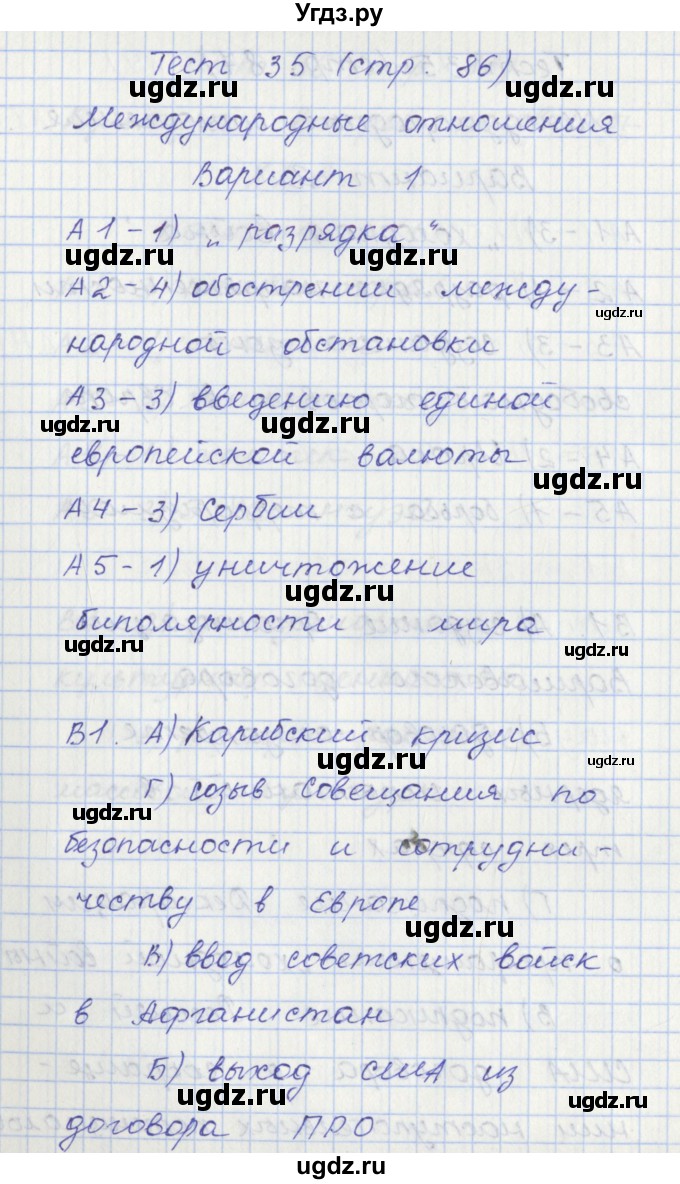 Угдз.ру
Тест 35 (стр. 86)
ugdz.ru ugdz.ru
Международные отношения
Вариант 1
А1 - 1) „разрядка“
ugdz.ru ugdz.ru
А2 - 4) обострении между-
ugdz.ru
народной обстановки
А3 - 3) введению единой
ugdz.ru ugdz.ru
европейской валюты
ugdz.ru
А4 - 3) Сербии
А5 - 1) уничтожение
ugdz.ru
биполярности мира
ugdz.ru ugdz.ru
В1. А) Карибский кризис
ugdz.ru ugdz.ru
Г) созыв Совещания по
ugdz.ru
безопасности и сотрудни-
честву в Европе
В) ввод советских войск
в Афганистан
Б) выход США из
ugdz.ru ugdz.ru
договора ПРО
ugdz.ru